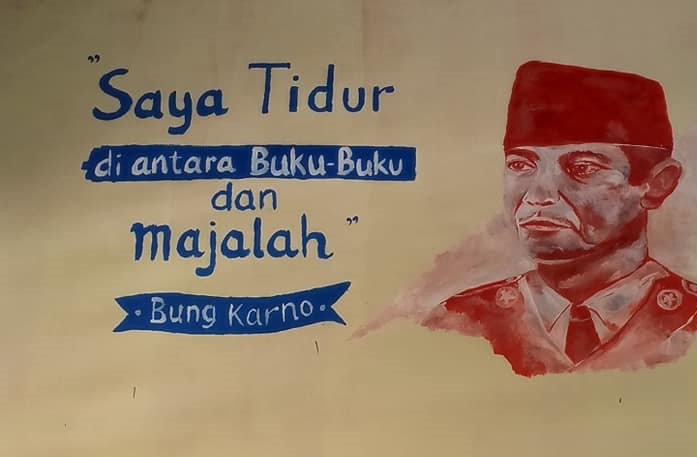 "Saya Tidur
di antara Buku-Buku
dan
majalah"
· Bung Karno ·